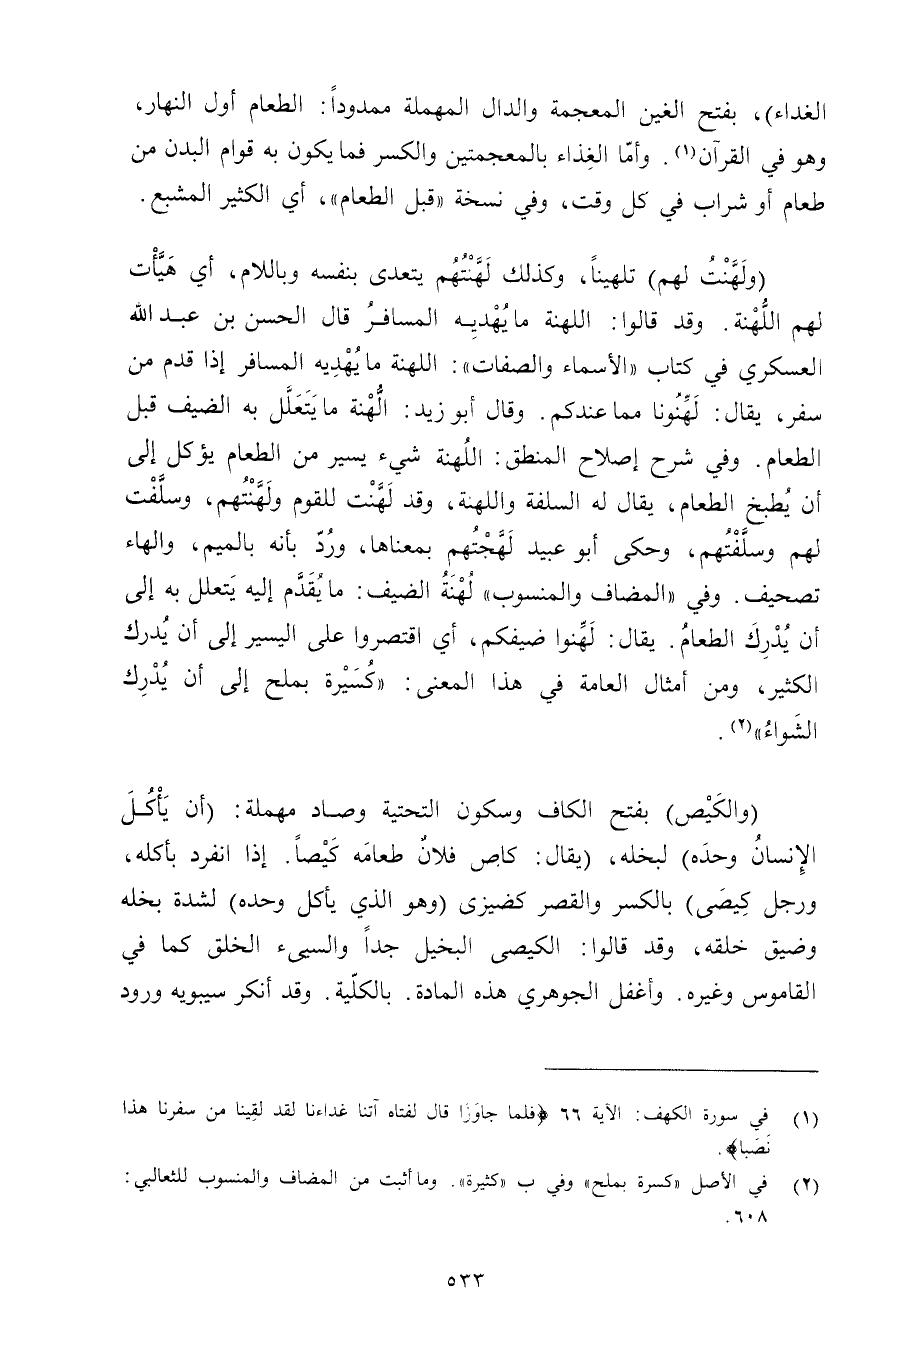 الغداء)، بفتح الغين المعجمة والدال المهملة ممدوداً: الطعام أول النهار،
وهو في القرآن(١). وأمّا الغِذاء بالمعجمتين والكسر فما يكون به قوام البدن من
طعام أو شراب في كل وقت، وفي نسخة «قبل الطعام»، أي الكثير المشبع.
(ولَهَّنْتُ لهم) تلهيناً، وكذلك لَهَّنْتُهُم يتعدى بنفسه وباللام، أي هَيَّأْت
لهم اللُّهْنة. وقد قالوا: اللهنة ما يُهْدِيه المسافرُ قال الحسن بن عبد الله
العسكري في كتاب «الأسماء والصفات»: اللهنة ما يُهْدِيه المسافر إذا قدم من
سفر، يقال: لَهِّنُونا مما عندكم. وقال أبو زيد: الُّهْنة ما يَتَعَلَّل به الضيف قبل
الطعام. وفي شرح إصلاح المنطق: اللُهنة شيء يسير من الطعام يؤكل إلى
أن يُطبخ الطعام، يقال له السلفة واللهنة، وقد لَهَّنْت للقوم ولَهَّنْتُهم، وسلَّفْت
لهم وسلَّفْتُهم، وحكى أبو عبيد لَهَّجْتُهم بمعناها، ورُدّ بأنه بالميم، والهاء
تصحيف. وفي «المضاف والمنسوب» لُهْنَةُ الضيف: ما يُقَدَّم إليه يَتعلل به إلى
أن يُدْرِكَ الطعامُ. يقال: لَهِّنوا ضيفكم، أي اقتصروا على اليسير إلى أن يُدرك
الكثير، ومن أمثال العامة في هذا المعنى: «كُسَيْرة بملح إلى أن يُدْرِك
الشَواءُ»(٢).
(والكَيْص) بفتح الكاف وسكون التحتية وصاد مهملة: (أن يَأْكُلَ
الإِنسانُ وحدَه) لبخله، (يقال: كاص فلانٌ طعامَه كَيْصاً. إذا انفرد بأكله،
ورجل كِيصَى) بالكسر والقصر كضيزى (وهو الذي يأكل وحده) لشدة بخله
وضيق خلقه، وقد قالوا: الكيصى البخيل جداً والسيىء الخلق كما في
القاموس وغيره. وأغفل الجوهري هذه المادة. بالكلّية. وقد أنكر سيبويه ورود
(١) في سورة الكهف: الآية ٦٦ ﴿فلما جاوَزَا قال لفتاه آتنا غداءنا لقد لقِينا من سفرنا هذا
نَصَبا﴾.
(٢) في الأصل «كسرة بملح» وفي ب «كثيرة». وما أثبت من المضاف والمنسوب للثعالبي:
٦٠٨.
٥٣٣